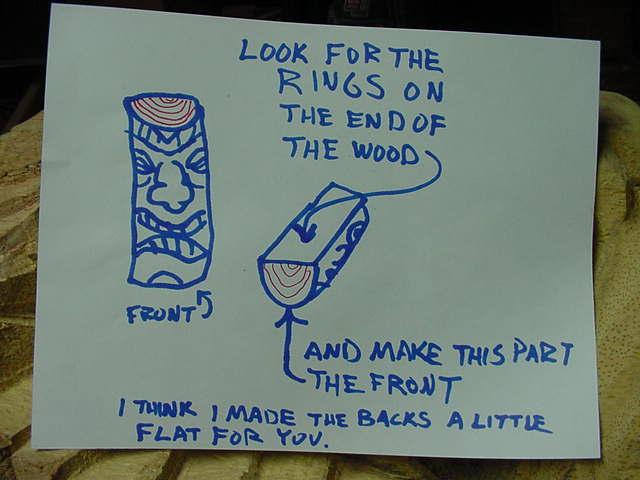 LOOK FOR THE
RINGS ON
THE END OF
THE WOOD
FRONT
AND MAKE THIS PART
THE FRONT
I THINK I MADE THE BACKS A LITTLE
FLAT FOR YOU.